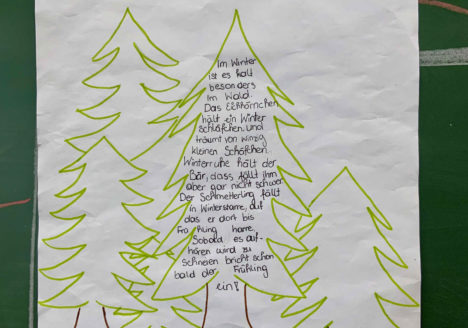 Im Winter
ist es kalt
besonders
im Wald.
Das Eichhörnchen
hält ein Winter
schläfchen. und
träumt von winzig
kleinen Schäfchen.
Winterruhe hält der
Bär, dass fällt ihm
aber gar nicht schwer
Der Schmetterling fällt
in Winterstarre, auf
das er dort bis
Frühling harre,
Sobald es auf-
hören wird zu
schneien bricht schon
bald der Frühling
ein!